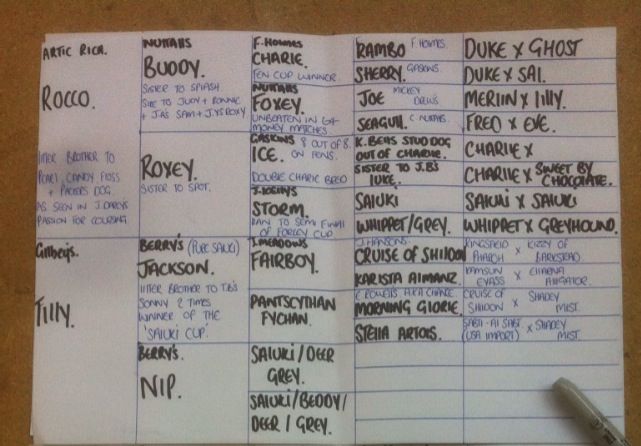 ARTIC RICA.
ROCCO.
LITTER BROTHER TO
PEARL, CANDY FLOSS
+ PACKERS DOG.
AS SEEN IN J. DARCYS
PASSION FOR COURSING.
Gilbey's.
TILLY.
NUTTALLS
BUDDY.
SISTER TO SPLASH
SIRE TO JUDY + RONNIE
+ JAS SAM + J.Y'S ROXY
ROXEY.
SISTER TO SPOT.
BERRY'S (PURE SALUKI)
JACKSON.
LITTER BROTHER TO T.B'S
SONNY 2 TIMES
WINNER OF THE
'SALUKI CUP'.
BERRY'S.
NIP.
F. HOLMES
CHARIE.
FEN CUP WINNER.
NUTTALLS
FOXEY.
UNBEATEN IN 6+
MONEY MATCHES.
GASKINS 8 OUT OF 8.
ICE. ON FENS.
DOUBLE CHARIE BRED
STORM.
RAN TO SEMI FINAL
OF FORLEY CUP.
J. MEADOWS
FAIRBOY.
PANTSCYTHAN
FYCHAN.
SALUKI/DEER
GREY.
SALUKI/BEDDY/
DEER/GREY.
RAMBO F. HOLMES.
SHERRY. GASKINS.
JOE MICKEY
DREWS.
SEAGULL. C NUTTALLS.
K. BELLS STUD DOG
OUT OF CHARLIE.
SISTER TO J.B'S
LUKE.
SALUKI
WHIPPET/GREY.
J. HANSONS.
CRUISE OF SHILOON
KARISTA AIMANZ.
MORNING GLORIE.
STELLA ARTOIS.
DUKE X GHOST
DUKE X SAL.
MERLIN X LILLY.
FRED X EVE.
CHARLIE X
CHARLIE X SWEET BY
CHOCOLATE.
SALUKI X SALUKI
WHIPPET X GREYHOUND.
X KIZZY OF
BARKSTEAD
X
ALLIGATOR.
CRUISE OF
SHILOON X SHADEY
MIST.
(USA IMPORT) X SHADEY
MIST.